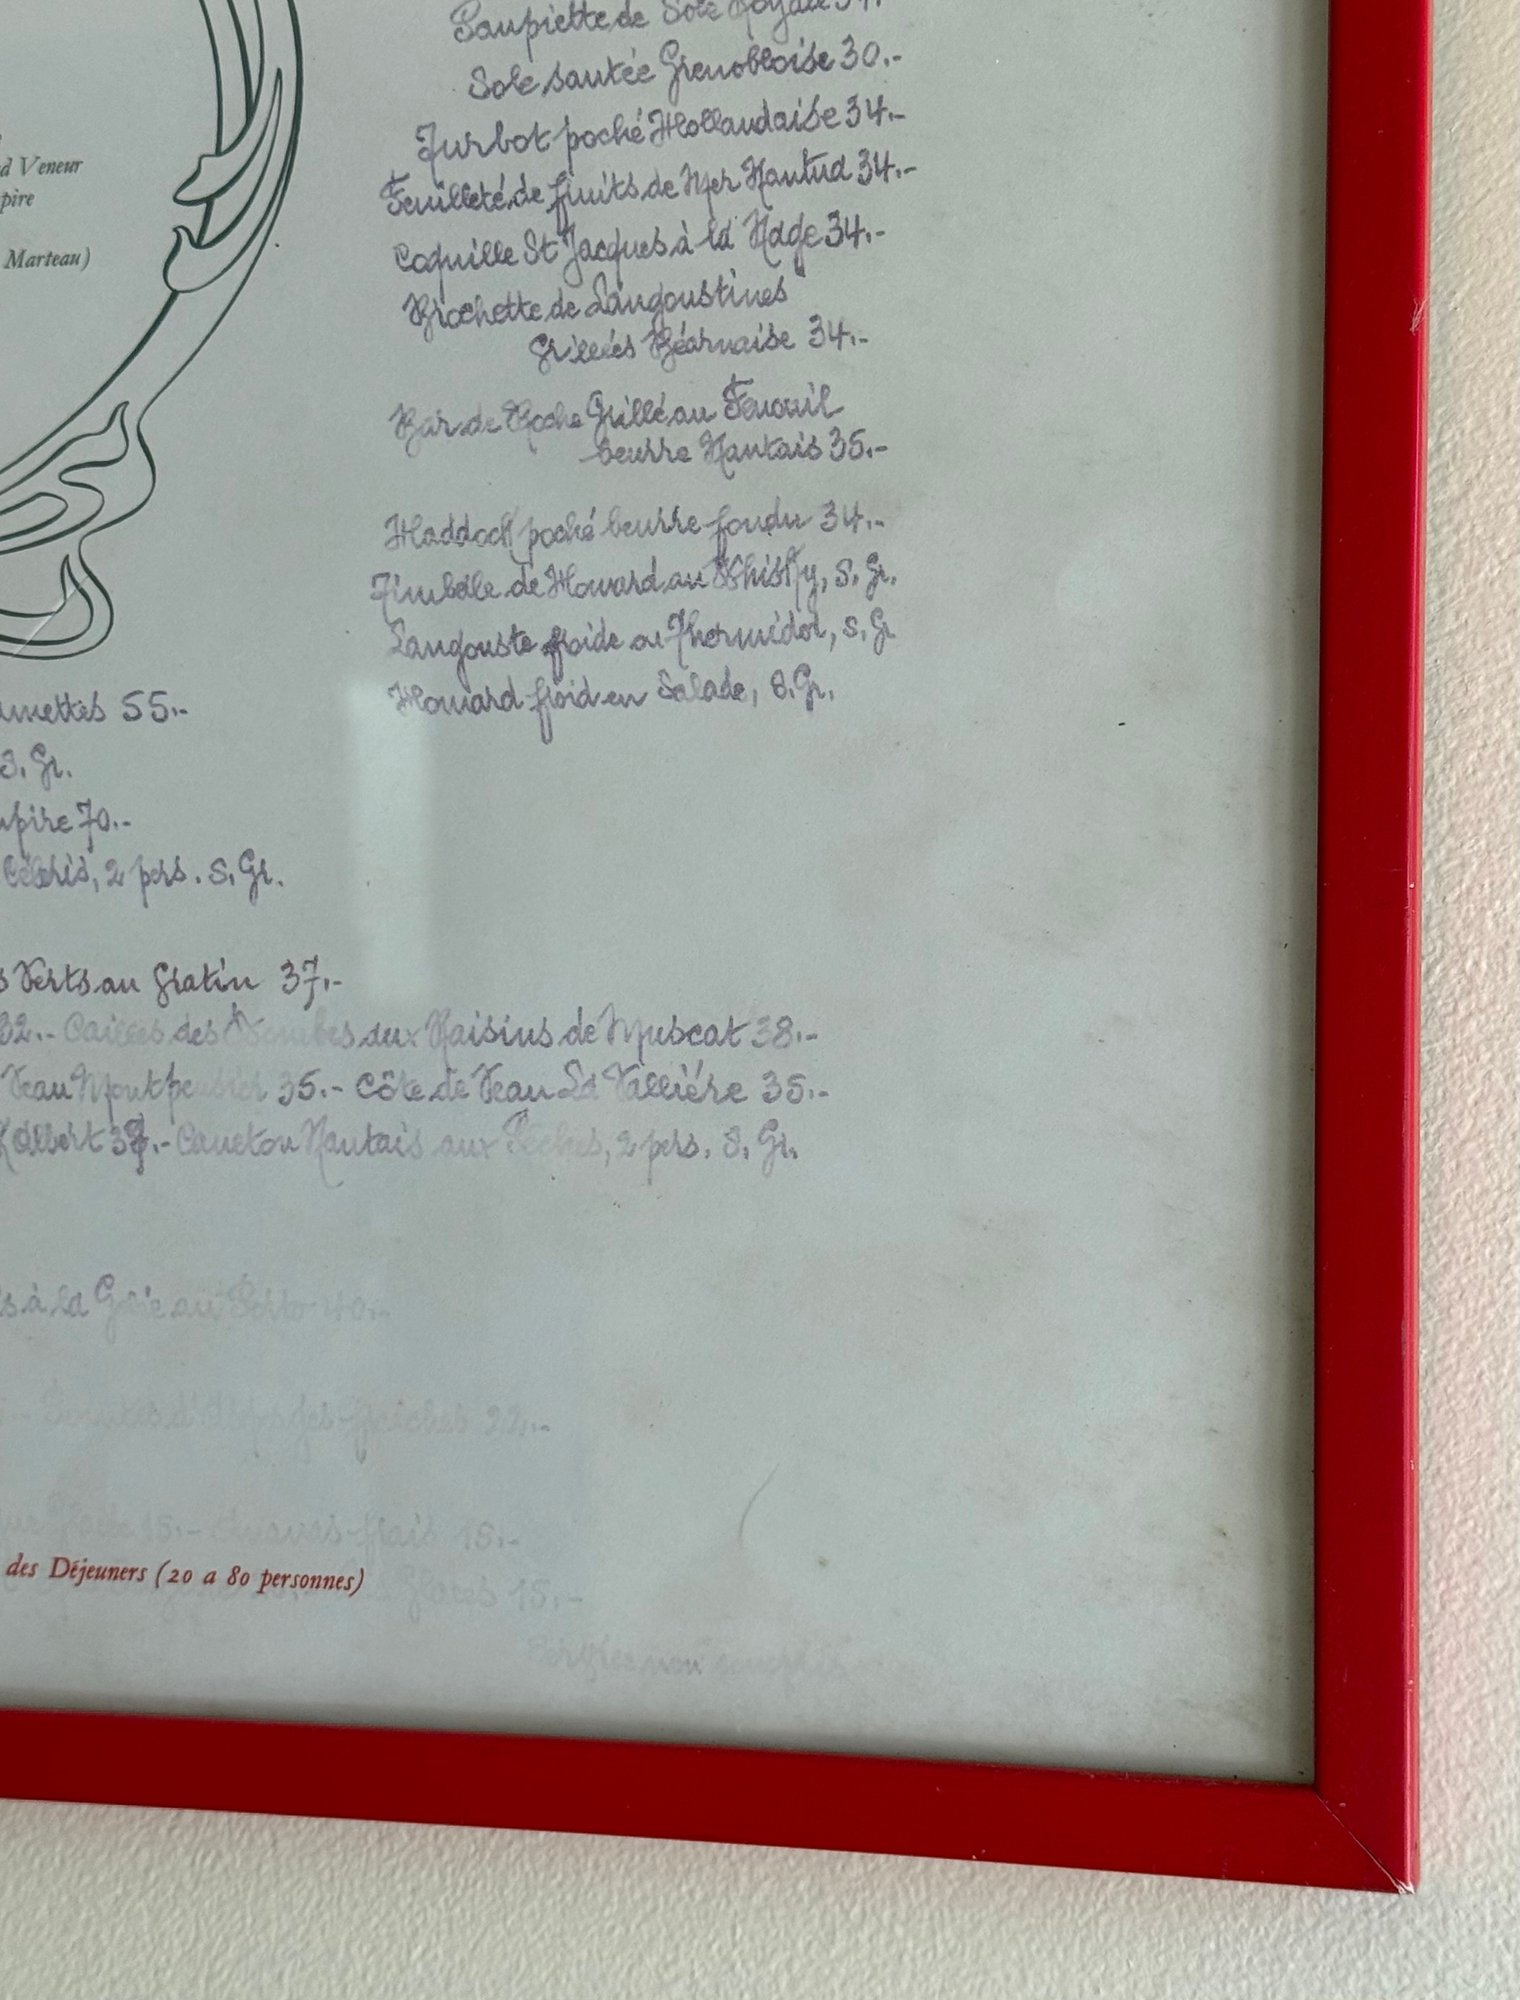 Paupiette de Sole Royale 34.-
Sole sautée Grenobloise 30.-
Turbot poché Hollandaise 34.-
Feuilleté de fruits de Mer Nantua 34.-
Coquille St Jacques à la Nage 34.-
Brochette de Langoustines
Grillées Béarnaise 34.-
Bar de Roche Grillé au Fenouil
beurre Nantais 35.-
Haddock poché beurre fondu 34.-
Timbale de Homard au Whisky, S. Gr.
Langouste froide ou Thermidor, S. Gr
Homard froid en Salade, S. Gr.
d Veneur
pire
Marteau)
umettes 55.-
S. Gr.
mpire 70.-
Céleris, 2 pers. S. Gr.
s Verts au Gratin 37.-
32.- Cailles des Dombes aux Raisins de Muscat 38.-
Veau Montpensier 35.- Côte de Veau La Vallière 35.-
Colbert 37.- Caneton Nantais aux Pêches, 2 pers. S. Gr.
s à la Gelée au Porto 40.-
fraiches 22.-
15.- Ananas frais 15.-
des Déjeuners (20 a 80 personnes)
Glaces 15.-
Service non compris